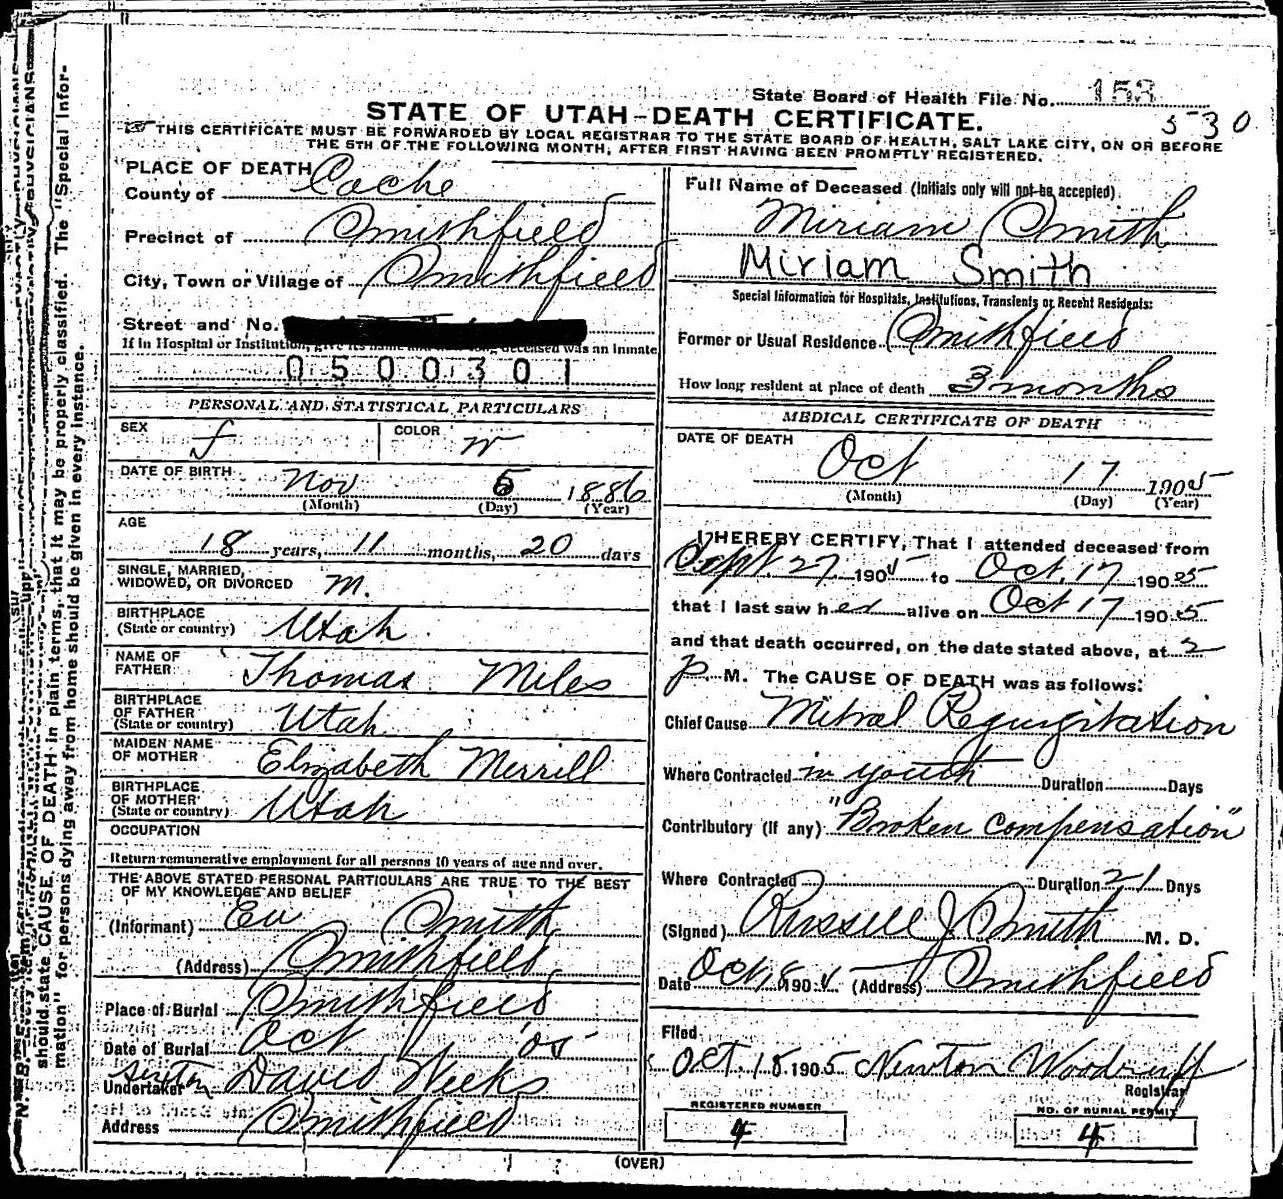 State Board of Health File No. 153
STATE OF UTAH-DEATH CERTIFICATE.
530
THIS CERTIFICATE MUST BE FORWARDED BY LOCAL REGISTRAR TO THE STATE BOARD OF HEALTH, SALT LAKE CITY, ON OR BEFORE
THE 5TH OF THE FOLLOWING MONTH, AFTER FIRST HAVING BEEN PROMPTLY REGISTERED.
PLACE OF DEATH
County of Cache
Precinct of Smithfield
City, Town or Village of Smithfield
Street and No.
If in Hospital or Institution, give its name deceased was an inmate
0500301
PERSONAL AND STATISTICAL PARTICULARS
SEX f COLOR w
DATE OF BIRTH Nov 5 1886
(Month) (Day) (Year)
AGE
18 years, 11 months, 20 days
SINGLE, MARRIED,
WIDOWED, OR DIVORCED m.
BIRTHPLACE
(State or country) Utah
NAME OF
FATHER Thomas Miles
BIRTHPLACE
OF FATHER
(State or country) Utah
MAIDEN NAME
OF MOTHER Elizabeth Merrill
BIRTHPLACE
OF MOTHER
(State or country) Utah
OCCUPATION
Return remunerative employment for all persons 10 years of age and over.
THE ABOVE STATED PERSONAL PARTICULARS ARE TRUE TO THE BEST
OF MY KNOWLEDGE AND BELIEF
(Informant) Smith
(Address) Smithfield
Place of Burial Smithfield
Date of Burial Oct '05
sexton
Undertaker David Weeks
Address Smithfield
Full Name of Deceased (Initials only will not be accepted)
Miriam Smith
Miriam Smith
Special Information for Hospitals, Institutions, Transients or Recent Residents:
Former or Usual Residence Smithfield
How long resident at place of death 3 months
MEDICAL CERTIFICATE OF DEATH
DATE OF DEATH
Oct 17 1905
(Month) (Day) (Year)
I HEREBY CERTIFY, That I attended deceased from
Sept. 27 1905 to Oct. 17 1905
that I last saw her alive on Oct 17 1905
and that death occurred, on the date stated above, at 2
p. M. The CAUSE OF DEATH was as follows:
Chief Cause Mitral Regurgitation
Where Contracted in youth Duration Days
Contributory (If any) "Broken compensation"
Where Contracted Duration 21 Days
(Signed) Russell J Smith M. D.
Date Oct 18 1905 (Address) Smithfield
Filed
Oct. 18 1905 Newton Woodruff
Registrar
REGISTERED NUMBER
4
NO. OF BURIAL PERMIT
4
(OVER)
should state CAUSE OF DEATH in plain terms, that it may be properly classified. The "Special Infor-
mation" for persons dying away from home should be given in every instance.